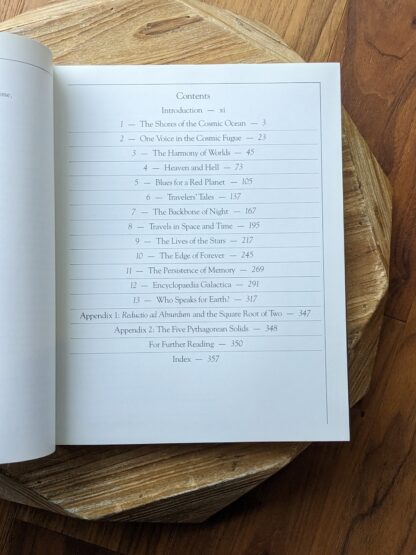 ome,
Contents
Introduction — xi
1 — The Shores of the Cosmic Ocean — 3
2 — One Voice in the Cosmic Fugue — 23
3 — The Harmony of Worlds — 45
4 — Heaven and Hell — 73
5 — Blues for a Red Planet — 105
6 — Travelers' Tales — 137
7 — The Backbone of Night — 167
8 — Travels in Space and Time — 195
9 — The Lives of the Stars — 217
10 — The Edge of Forever — 245
11 — The Persistence of Memory — 269
12 — Encyclopaedia Galactica — 291
13 — Who Speaks for Earth? — 317
Appendix 1: Reductio ad Absurdum and the Square Root of Two — 347
Appendix 2: The Five Pythagorean Solids — 348
For Further Reading — 350
Index — 357